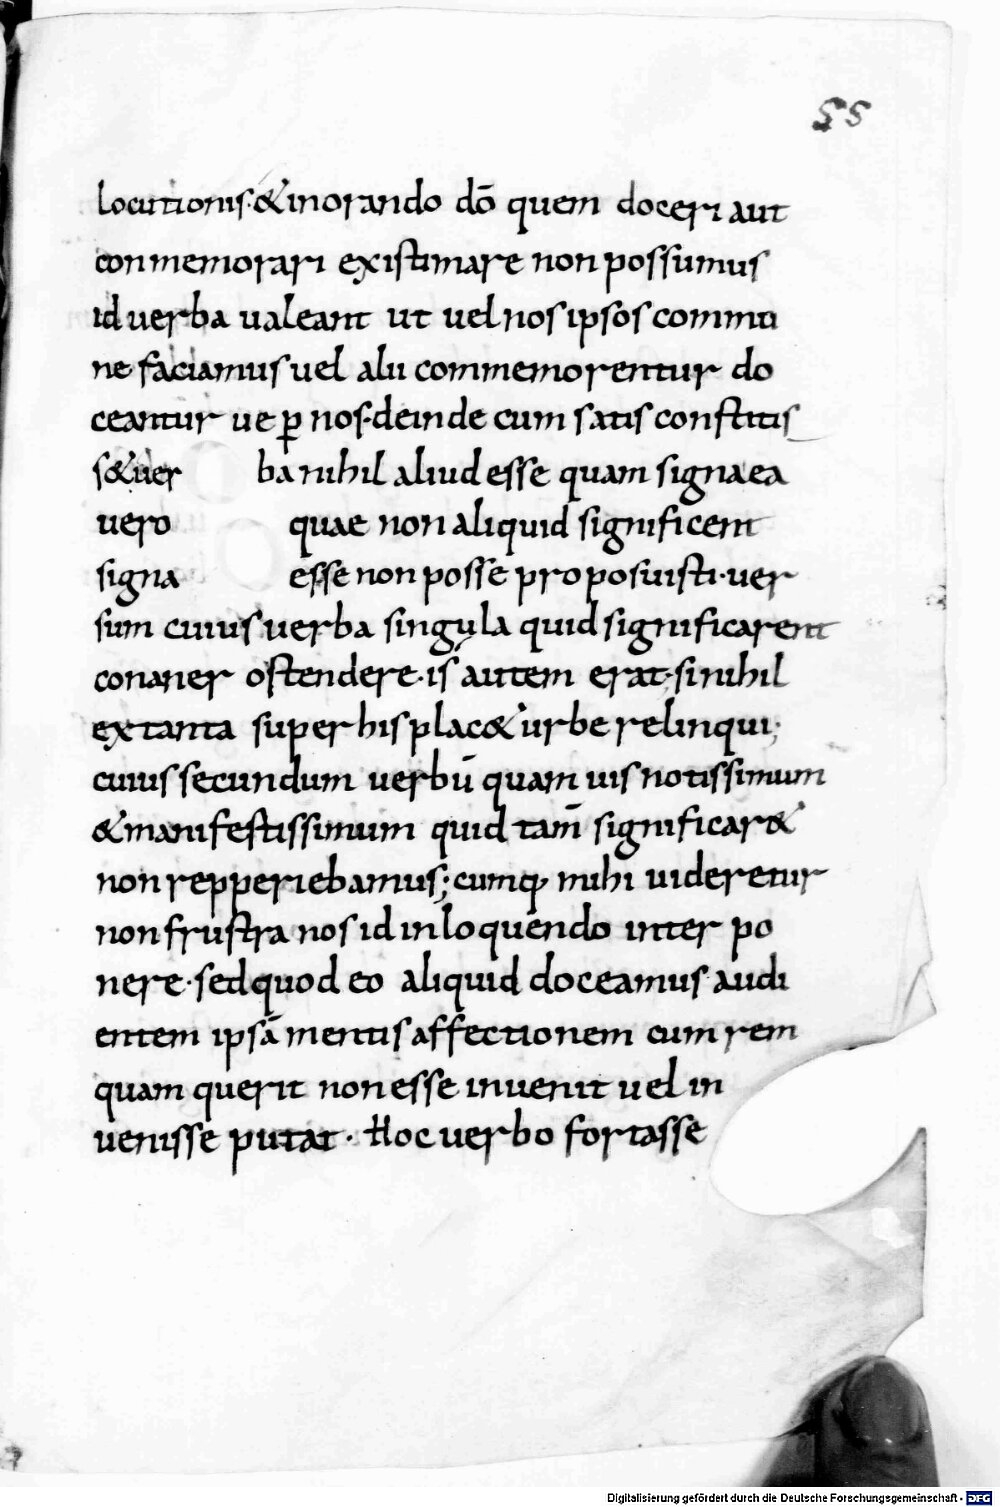 55
locutionis·&inorando dō quem doceri aut
conmemorari existimare non possumus
id verba valeant ut vel nos ipsos commo
ne faciamus vel alii commemorentur do
ceantur ve ꝑ nos·deinde cum satis constitis
s&ver ba nihil aliud esse quam signa ea
vero quae non aliquid significent
signa esse non posse proposuisti·ver
sum cuius verba singula quid significarent
conarer ostendere·is autem erat·si nihil
ex tanta superhis plac&urbe relinqui;
cuius secundum verbū quam vis notissimum
&manifestissimum quid tam̄ significar&
non repperiebamus; cumq; mihi videretur
non frustra nos id in loquendo inter po
nere·sed quod eo aliquid doceamus audi
entem ipsā mentis affectionem cum rem
quam querit non esse invenit vel in
venisse putat· Hoc verbo fortasse
Digitalisierung gefördert durch die Deutsche Forschungsgemeinschaft - DFG